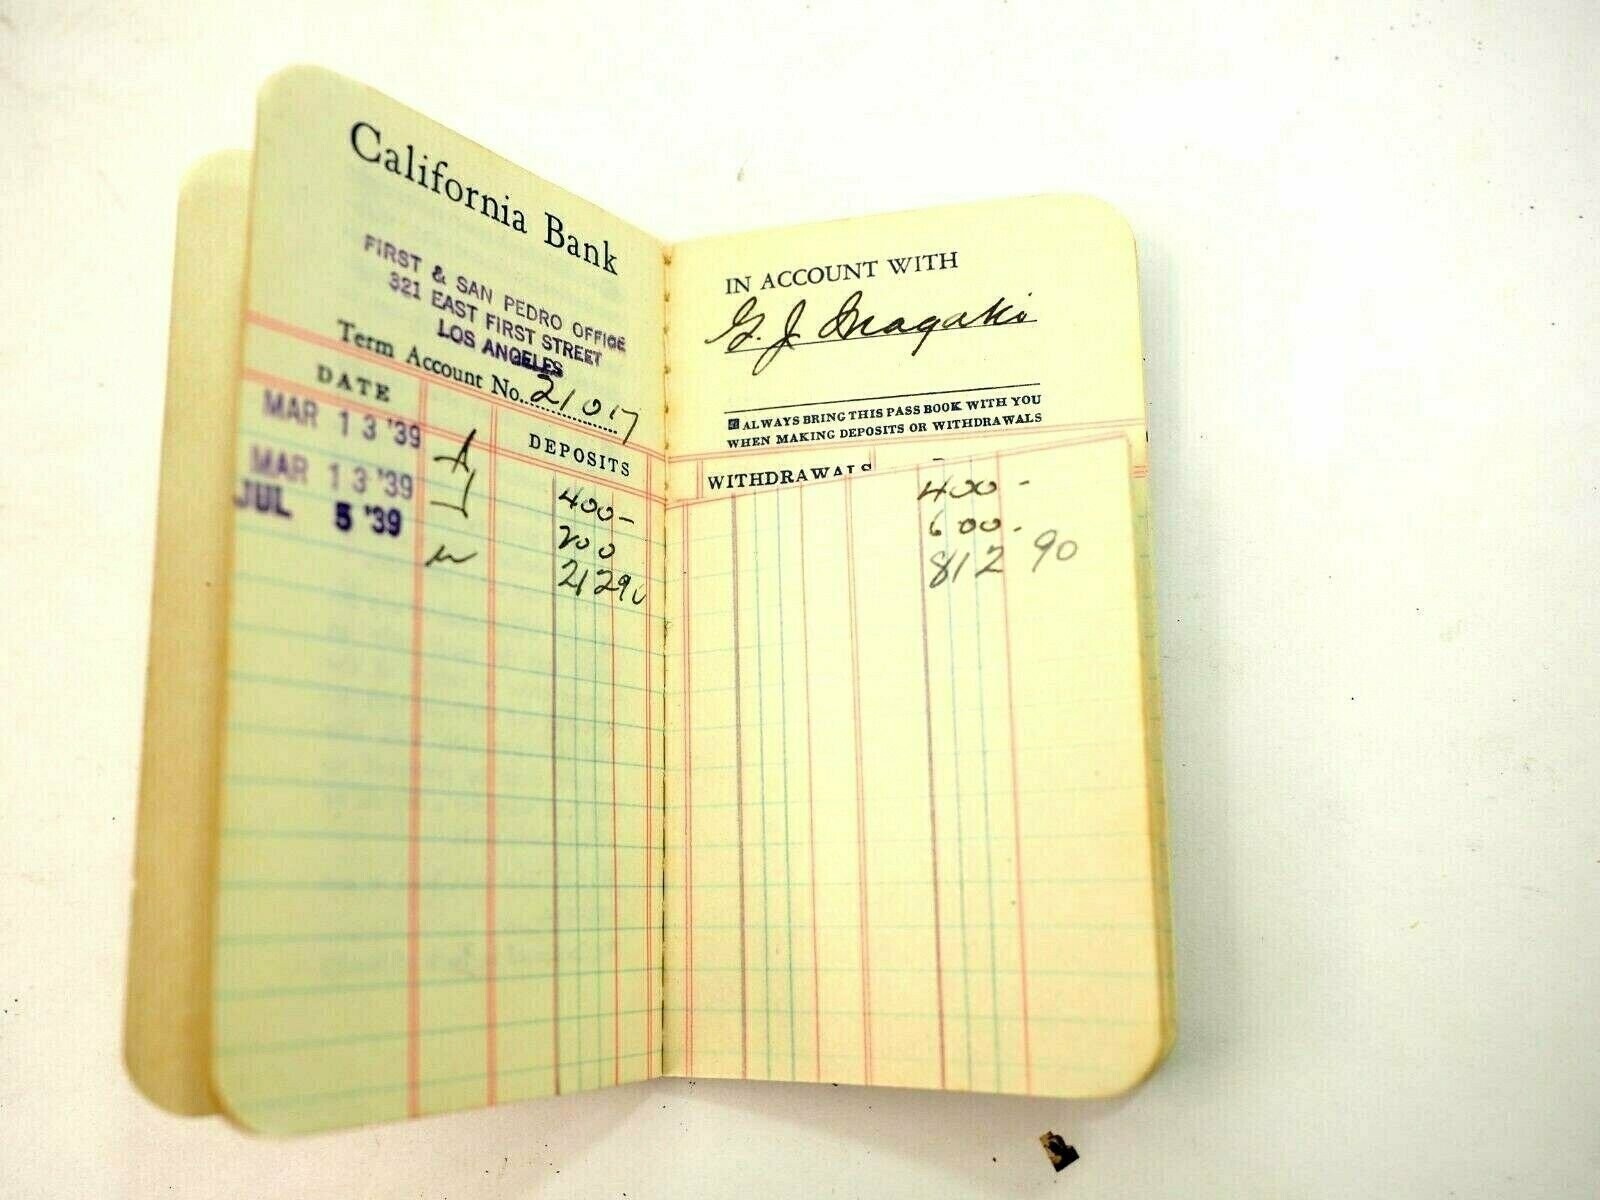 California Bank
FIRST & SAN PEDRO OFFICE
321 EAST FIRST STREET
LOS ANGELES
Term Account No. 21017
DATE
DEPOSITS
MAR 13 '39
400-
MAR 13 '39
200
JUL 5 '39
212 90
IN ACCOUNT WITH
G. J. Inagaki
ALWAYS BRING THIS PASS BOOK WITH YOU
WHEN MAKING DEPOSITS OR WITHDRAWALS
WITHDRAWALS
400-
600-
812 90